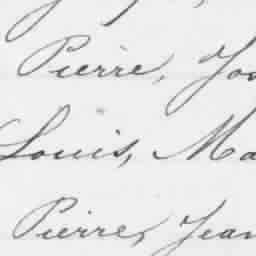 Pierre, Jos
Louis, Ma
Pierre, Jean